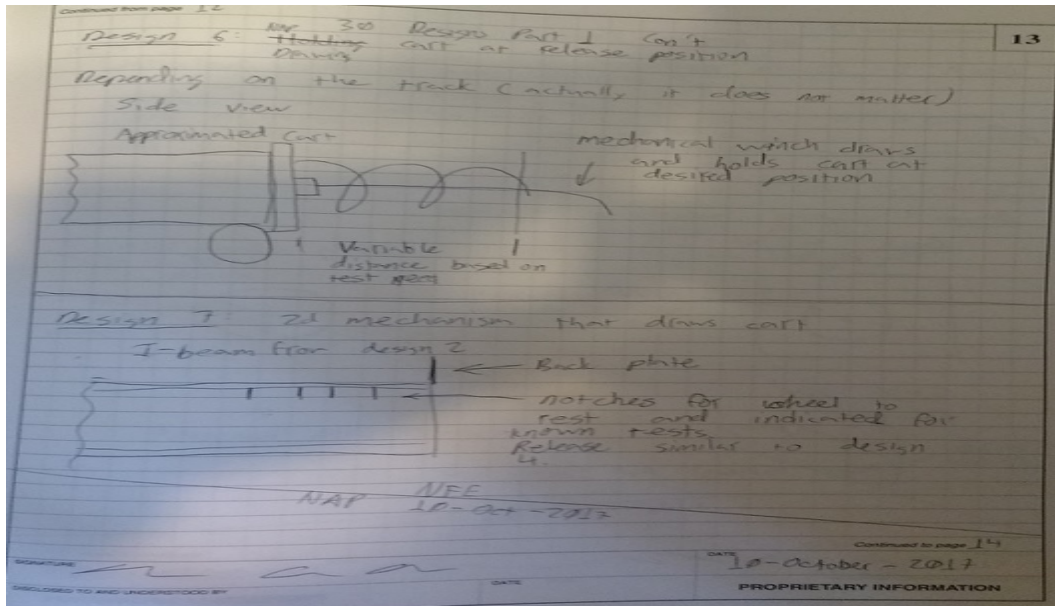 Continued from page 12
13
NAP 3D Design Part 1 Con't
Design 6: Holding cart at release position
Drawing
Depending on the track (actually it does not matter)
Side view
Approximated Cart
mechanical winch draws
and holds cart at
desired position
Variable
distance based on
test
Design 7 2d mechanism that draws cart
I-beam from design 2
Back plate
notches for wheel to
rest and indicated for
known tests
Release similar to design
4.
NAP NEE
10-Oct-2017
Continued to page 14
SIGNATURE
DATE
10-October-2017
DISCLOSED TO AND UNDERSTOOD BY
DATE
PROPRIETARY INFORMATION